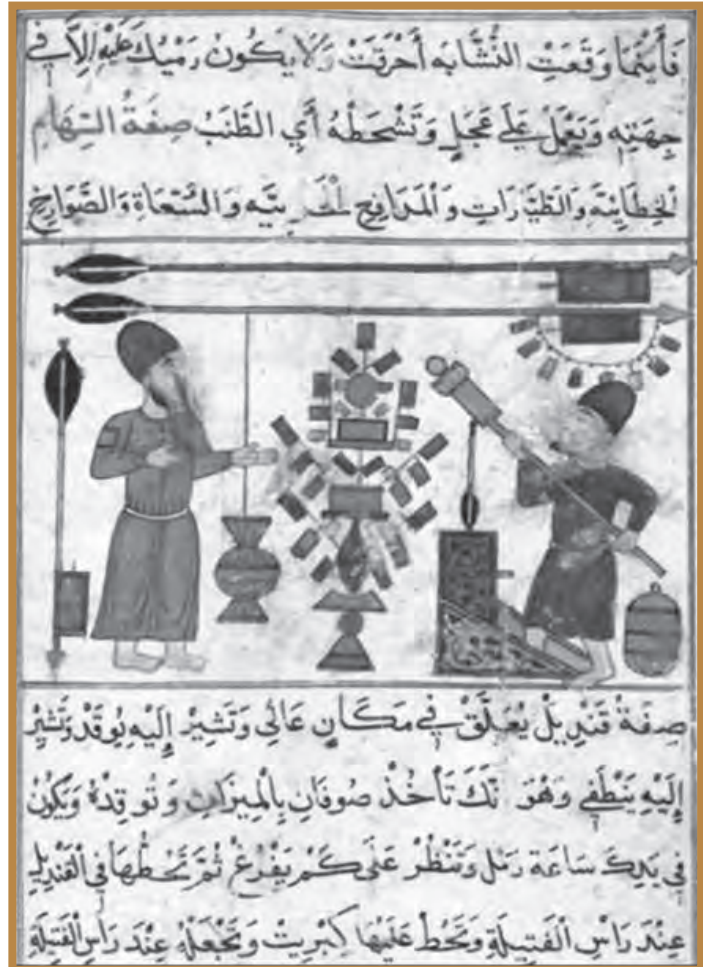 فَأَيْنَمَا وَقَعَتِ النُّشَّابَه أَحْرَقَت وَلَا يَكُونُ رَمْيُكَ عَلَيْهِ إِلَّا فِي
جِهَتِهِ وَيَعْمَلُ عَلَى عَجَلٍ وَتَشْحَطُهُ أَيِ الطَّنَبُ صِفَةُ السِّهَامِ
الْخِطَائِيَّة وَالطَّيَّارَاتِ وَالْمَدَافِعِ وَالسُّعَاةِ وَالصَّوَارِخ
صِفَةُ قَنْدِيلٍ يُعَلَّقُ فِي مَكَانٍ عَالِي وَتَشِيرُ إِلَيْهِ يُوقَدْ وَتَشِيرُ
إِلَيْهِ يَنْطَفِي وَهُوَ تَأْخُذْ صُوفَان بِالْمِيزَانِ وَتُوقِدْهُ وَيَكُونُ
فِي يَدِكَ سَاعَة رَمْل وَتَنْظُرْ عَلَى كَمْ يَفْرُغْ ثُمَّ تَحُطُّهَا فِي الْقَنْدِيلِ
عِنْدَ رَاسِ الْفَتِيلَةِ وَتَحُطْ عَلَيْهَا كِبْرِيتْ وَتَجْعَلْهُ عِنْدَ رَاسِ الْفَتِيلَةِ